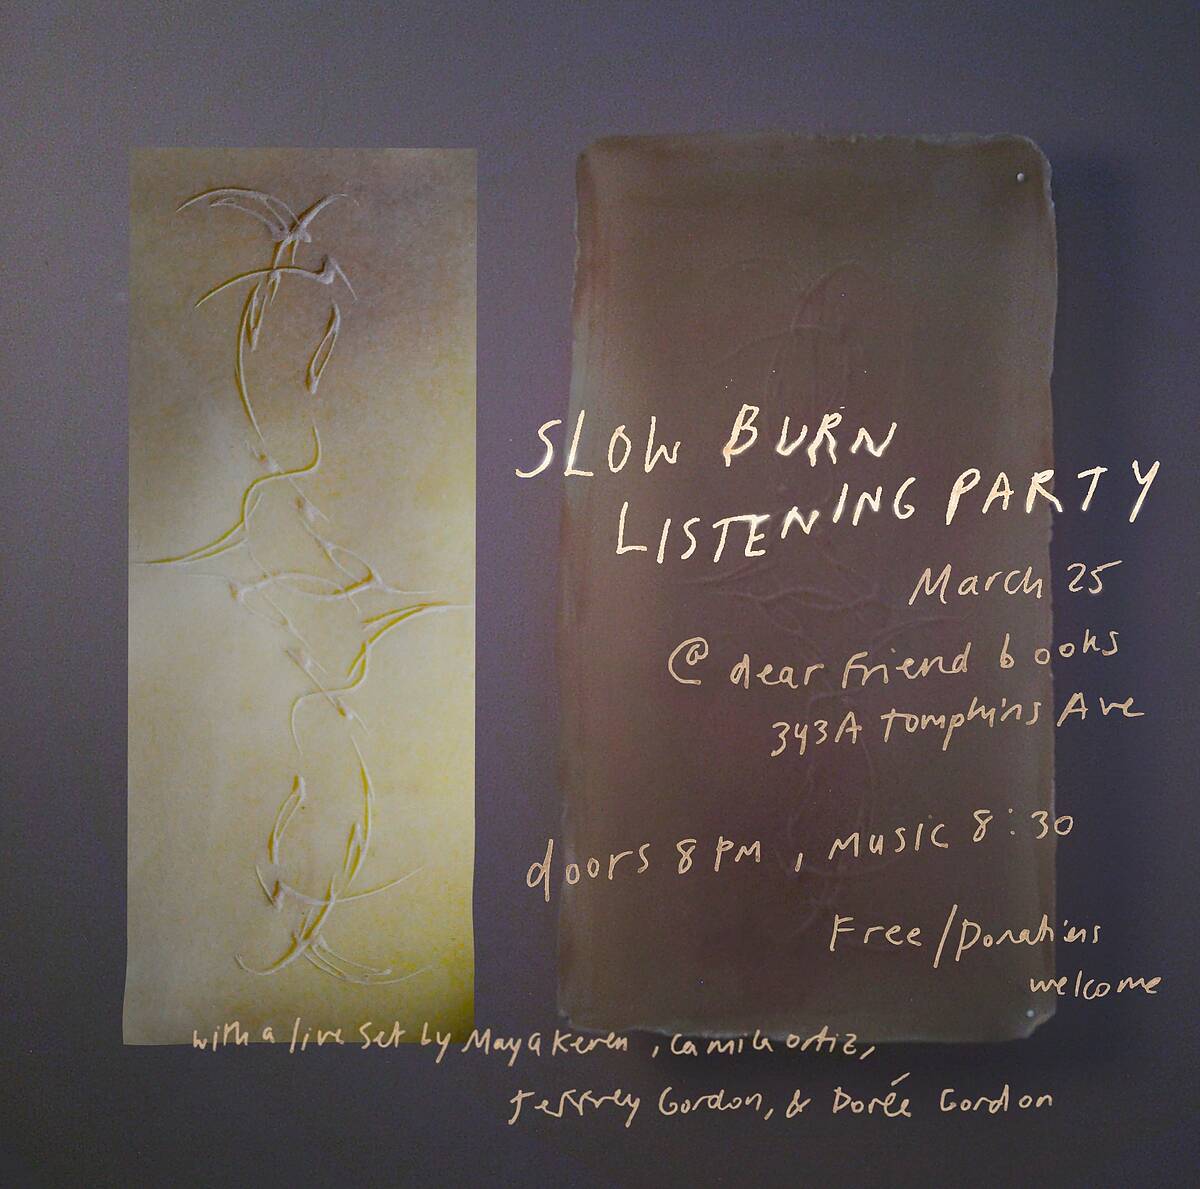 SLOW BURN
LISTENING PARTY
March 25
@ dear Friend books
343A Tompkins Ave
doors 8 PM, MUSIC 8:30
Free/Donations
welcome
with a live Set by Maya Keren, Camila Ortiz,
Jeffrey Gordon, & Dorée Gordon